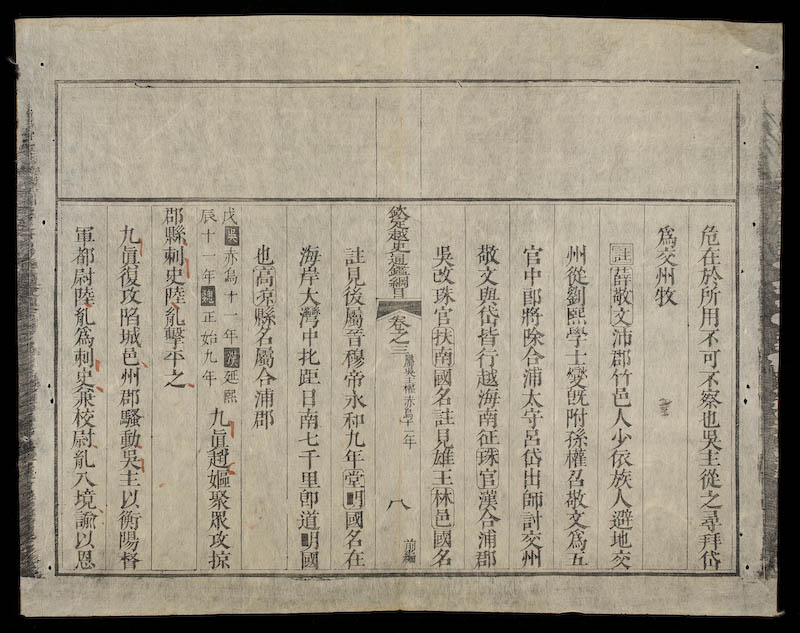 危在於所用不可不察也吳主從之尋拜岱
爲交州牧
註薛敬文沛郡竹邑人少依族人避地交
州從劉熙學士燮旣附孫權召敬文爲五
官中郎將除合浦太守呂岱出師討交州
敬文與岱皆行越海南征珠官漢合浦郡
吳改珠官扶南國名註見雄王林邑國名
欽定越史通鑑綱目 卷之三 屬吳主權赤烏十一年 八 前編
註見後屬晉穆帝永和九年堂明國名在
海岸大灣中北距日南七千里卽道明國
也高凉縣名屬合浦郡
戊辰十一年吳赤烏十一年漢延熙魏正始九年九眞趙嫗聚眾攻掠
郡縣刺史陸胤擊平之
九眞復攻陷城邑州郡騷動吳主以衡陽督
軍都尉陸胤爲刺史兼校尉胤入境諭以恩